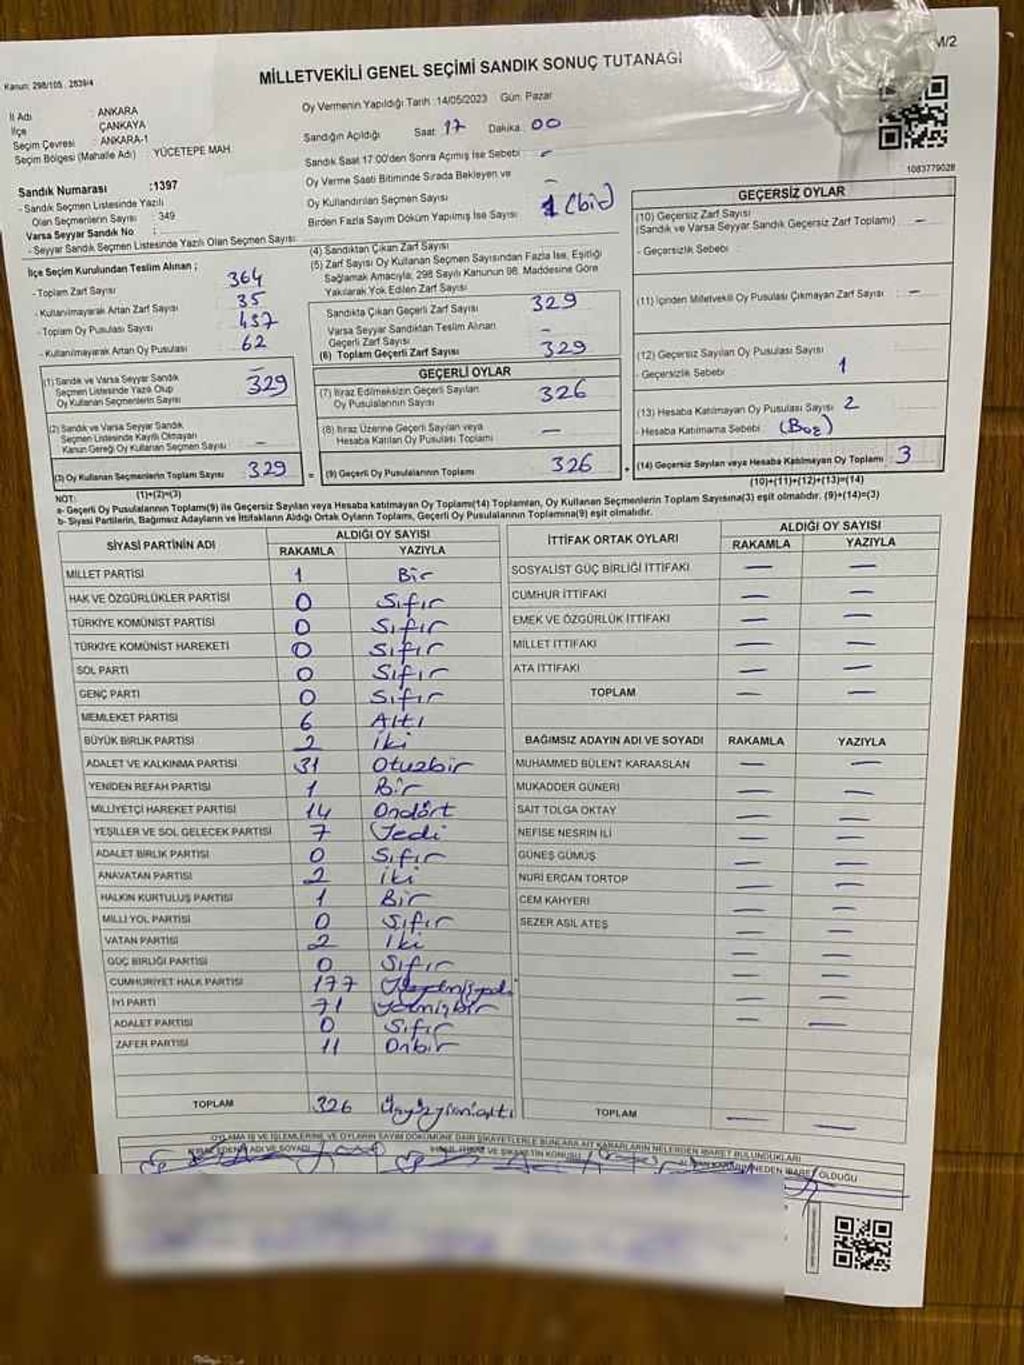 M/2
Kanun: 298/105 , 2839/4
MİLLETVEKİLİ GENEL SEÇİMİ SANDIK SONUÇ TUTANAĞI
İl Adı : ANKARA
İlçe : ÇANKAYA
Seçim Çevresi : ANKARA-1
Seçim Bölgesi (Mahalle Adı) : YÜCETEPE MAH.
Oy Vermenin Yapıldığı Tarih :14/05/2023 Gün: Pazar
Sandığın Açıldığı Saat: 17 Dakika: 00
Sandık Saat 17:00'den Sonra Açmış İse Sebebi : -
Oy Verme Saati Bitiminde Sırada Bekleyen ve
Oy Kullandırılan Seçmen Sayısı : -
Birden Fazla Sayım Döküm Yapılmış İse Sayısı : 1 (bir)
1083779028
Sandık Numarası :1397
- Sandık Seçmen Listesinde Yazılı
Olan Seçmenlerin Sayısı : 349
Varsa Seyyar Sandık No :
- Seyyar Sandık Seçmen Listesinde Yazılı Olan Seçmen Sayısı:
İlçe Seçim Kurulundan Teslim Alınan ;
- Toplam Zarf Sayısı 364
- Kullanılmayarak Artan Zarf Sayısı 35
- Toplam Oy Pusulası Sayısı 437
- Kullanılmayarak Artan Oy Pusulası 62
(1) Sandık ve Varsa Seyyar Sandık
Seçmen Listesinde Yazılı Olup
Oy Kullanan Seçmenlerin Sayısı 329
(2) Sandık ve Varsa Seyyar Sandık
Seçmen Listesinde Kayıtlı Olmayan
Kanun Gereği Oy Kullanan Seçmen Sayısı -
(3) Oy Kullanan Seçmenlerin Toplam Sayısı 329
(1)+(2)=(3)
(4) Sandıktan Çıkan Zarf Sayısı
(5) Zarf Sayısı Oy Kullanan Seçmen Sayısından Fazla İse, Eşitliği
Sağlamak Amacıyla, 298 Sayılı Kanunun 98. Maddesine Göre
Yakılarak Yok Edilen Zarf Sayısı
Sandıkta Çıkan Geçerli Zarf Sayısı 329
Varsa Seyyar Sandıktan Teslim Alınan
Geçerli Zarf Sayısı -
(6) Toplam Geçerli Zarf Sayısı 329
GEÇERLİ OYLAR
(7) İtiraz Edilmeksizin Geçerli Sayılan
Oy Pusulalarının Sayısı 326
(8) İtiraz Üzerine Geçerli Sayılan veya
Hesaba Katılan Oy Pusulası Toplamı -
= (9) Geçerli Oy Pusulalarının Toplamı 326
GEÇERSİZ OYLAR
(10) Geçersiz Zarf Sayısı
(Sandık ve Varsa Seyyar Sandık Geçersiz Zarf Toplamı) : -
- Geçersizlik Sebebi :
(11) İçinden Milletvekili Oy Pusulası Çıkmayan Zarf Sayısı : -
(12) Geçersiz Sayılan Oy Pusulası Sayısı : 1
- Geçersizlik Sebebi
(13) Hesaba Katılmayan Oy Pusulası Sayısı : 2
- Hesaba Katılmama Sebebi : (Boş)
+ (14) Geçersiz Sayılan veya Hesaba Katılmayan Oy Toplamı 3
(10)+(11)+(12)+(13)=(14)
NOT:
a- Geçerli Oy Pusulalarının Toplamı(9) ile Geçersiz Sayılan veya Hesaba katılmayan Oy Toplamı(14) Toplamları, Oy Kullanan Seçmenlerin Toplam Sayısına(3) eşit olmalıdır. (9)+(14)=(3)
b- Siyasi Partilerin, Bağımsız Adayların ve İttifakların Aldığı Ortak Oyların Toplamı, Geçerli Oy Pusulalarının Toplamına(9) eşit olmalıdır.
SİYASİ PARTİNİN ADI ALDIĞI OY SAYISI
RAKAMLA YAZIYLA
MİLLET PARTİSİ 1 Bir
HAK VE ÖZGÜRLÜKLER PARTİSİ 0 Sıfır
TÜRKİYE KOMÜNİST PARTİSİ 0 Sıfır
TÜRKİYE KOMÜNİST HAREKETİ 0 Sıfır
SOL PARTİ 0 Sıfır
GENÇ PARTİ 0 Sıfır
MEMLEKET PARTİSİ 6 Altı
BÜYÜK BİRLİK PARTİSİ 2 İki
ADALET VE KALKINMA PARTİSİ 31 Otuzbir
YENİDEN REFAH PARTİSİ 1 Bir
MİLLİYETÇİ HAREKET PARTİSİ 14 Ondört
YEŞİLLER VE SOL GELECEK PARTİSİ 7 Yedi
ADALET BİRLİK PARTİSİ 0 Sıfır
ANAVATAN PARTİSİ 2 İki
HALKIN KURTULUŞ PARTİSİ 1 Bir
MİLLİ YOL PARTİSİ 0 Sıfır
VATAN PARTİSİ 2 İki
GÜÇ BİRLİĞİ PARTİSİ 0 Sıfır
CUMHURİYET HALK PARTİSİ 177
İYİ PARTİ 71 Yetmişbir
ADALET PARTİSİ 0 Sıfır
ZAFER PARTİSİ 11 Onbir
TOPLAM 326 Üçyüzyirmialtı
İTTİFAK ORTAK OYLARI ALDIĞI OY SAYISI
RAKAMLA YAZIYLA
SOSYALİST GÜÇ BİRLİĞİ İTTİFAKI - -
CUMHUR İTTİFAKI - -
EMEK VE ÖZGÜRLÜK İTTİFAKI - -
MİLLET İTTİFAKI - -
ATA İTTİFAKI - -
TOPLAM - -
BAĞIMSIZ ADAYIN ADI VE SOYADI RAKAMLA YAZIYLA
MUHAMMED BÜLENT KARAASLAN - -
MUKADDER GÜNERİ - -
SAİT TOLGA OKTAY - -
NEFİSE NESRİN İLİ - -
GÜNEŞ GÜMÜŞ - -
NURİ ERCAN TORTOP - -
CEM KAHYERİ - -
SEZER ASİL ATEŞ - -
TOPLAM - -
OYLAMA İŞ VE İŞLEMLERİNE VE OYLARIN SAYIM DÖKÜMÜNE DAİR ŞİKAYETLERLE BUNLARA AİT KARARLARIN NELERDEN İBARET BULUNDUKLARI
ADI VE SOYADI
İTİRAZ VE ŞİKAYETİN KONUSU
NEDEN İBARET OLDUĞU